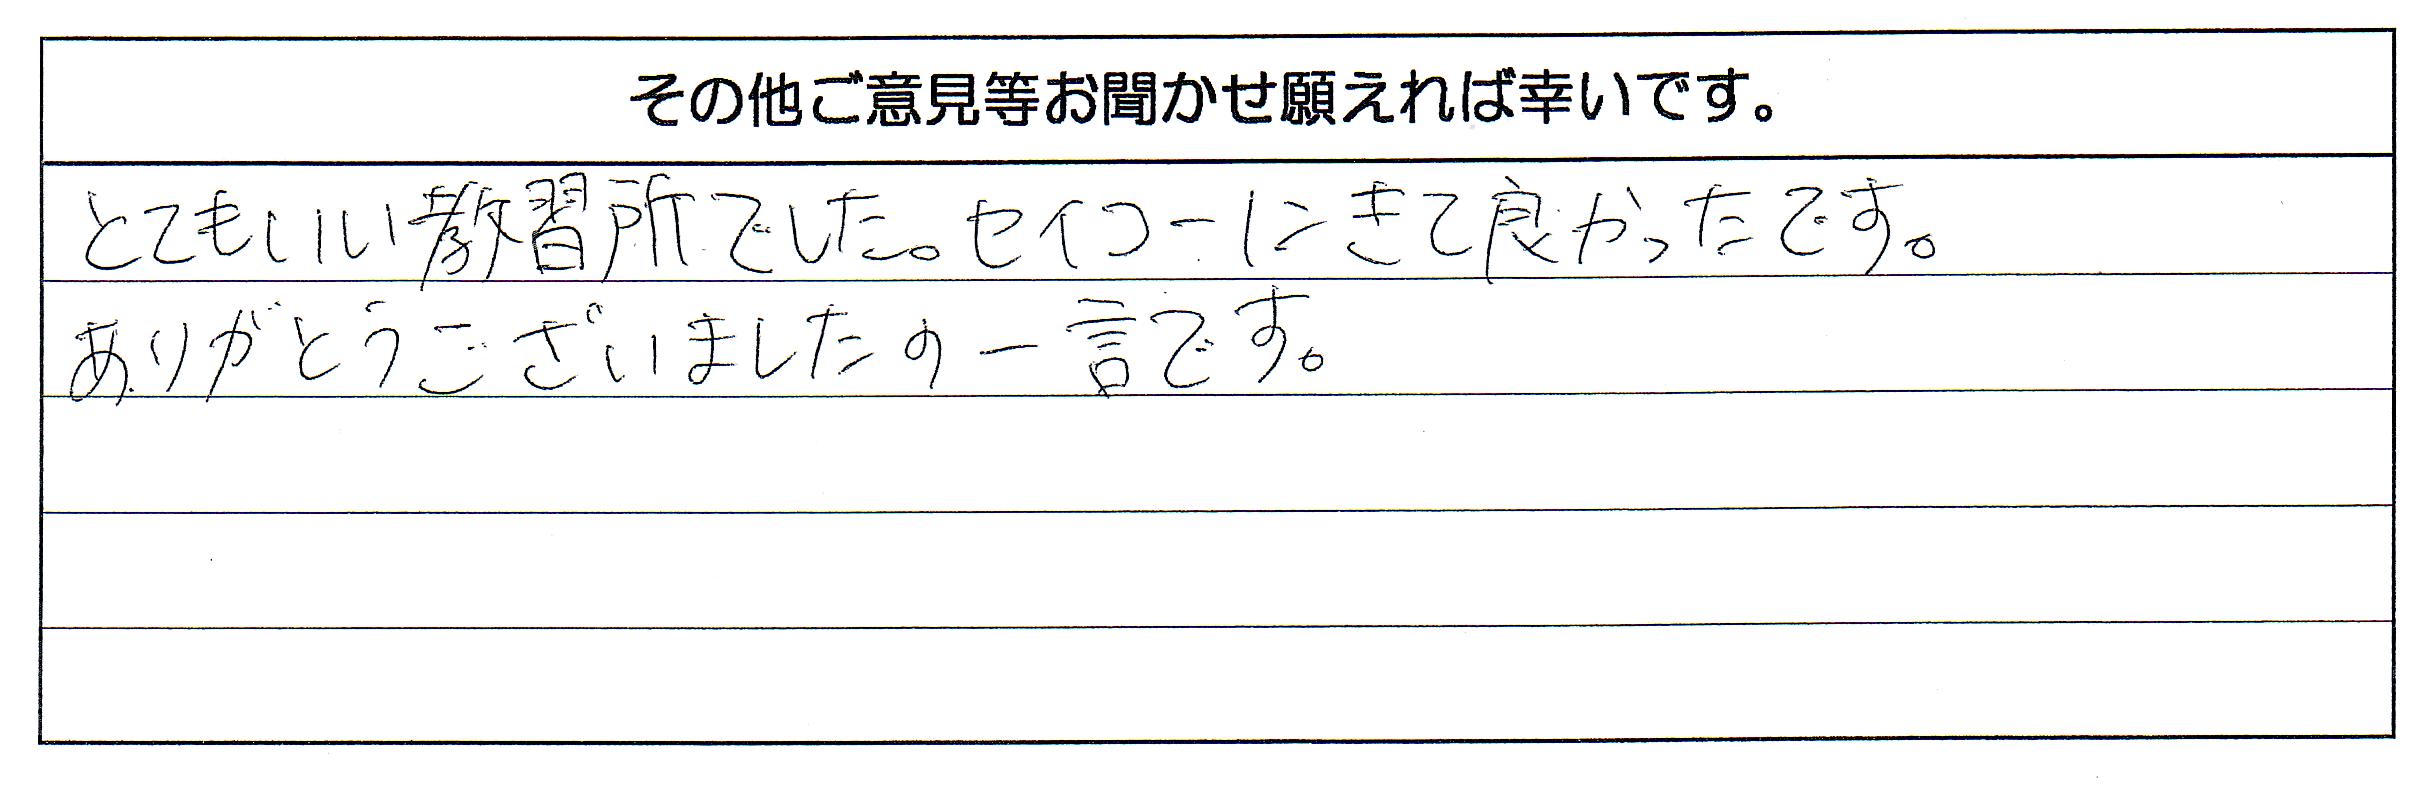 その他ご意見等お聞かせ願えれば幸いです。
とてもいい教習所でした。セイコーにきて良かったです。
ありがとうございましたの一言です。